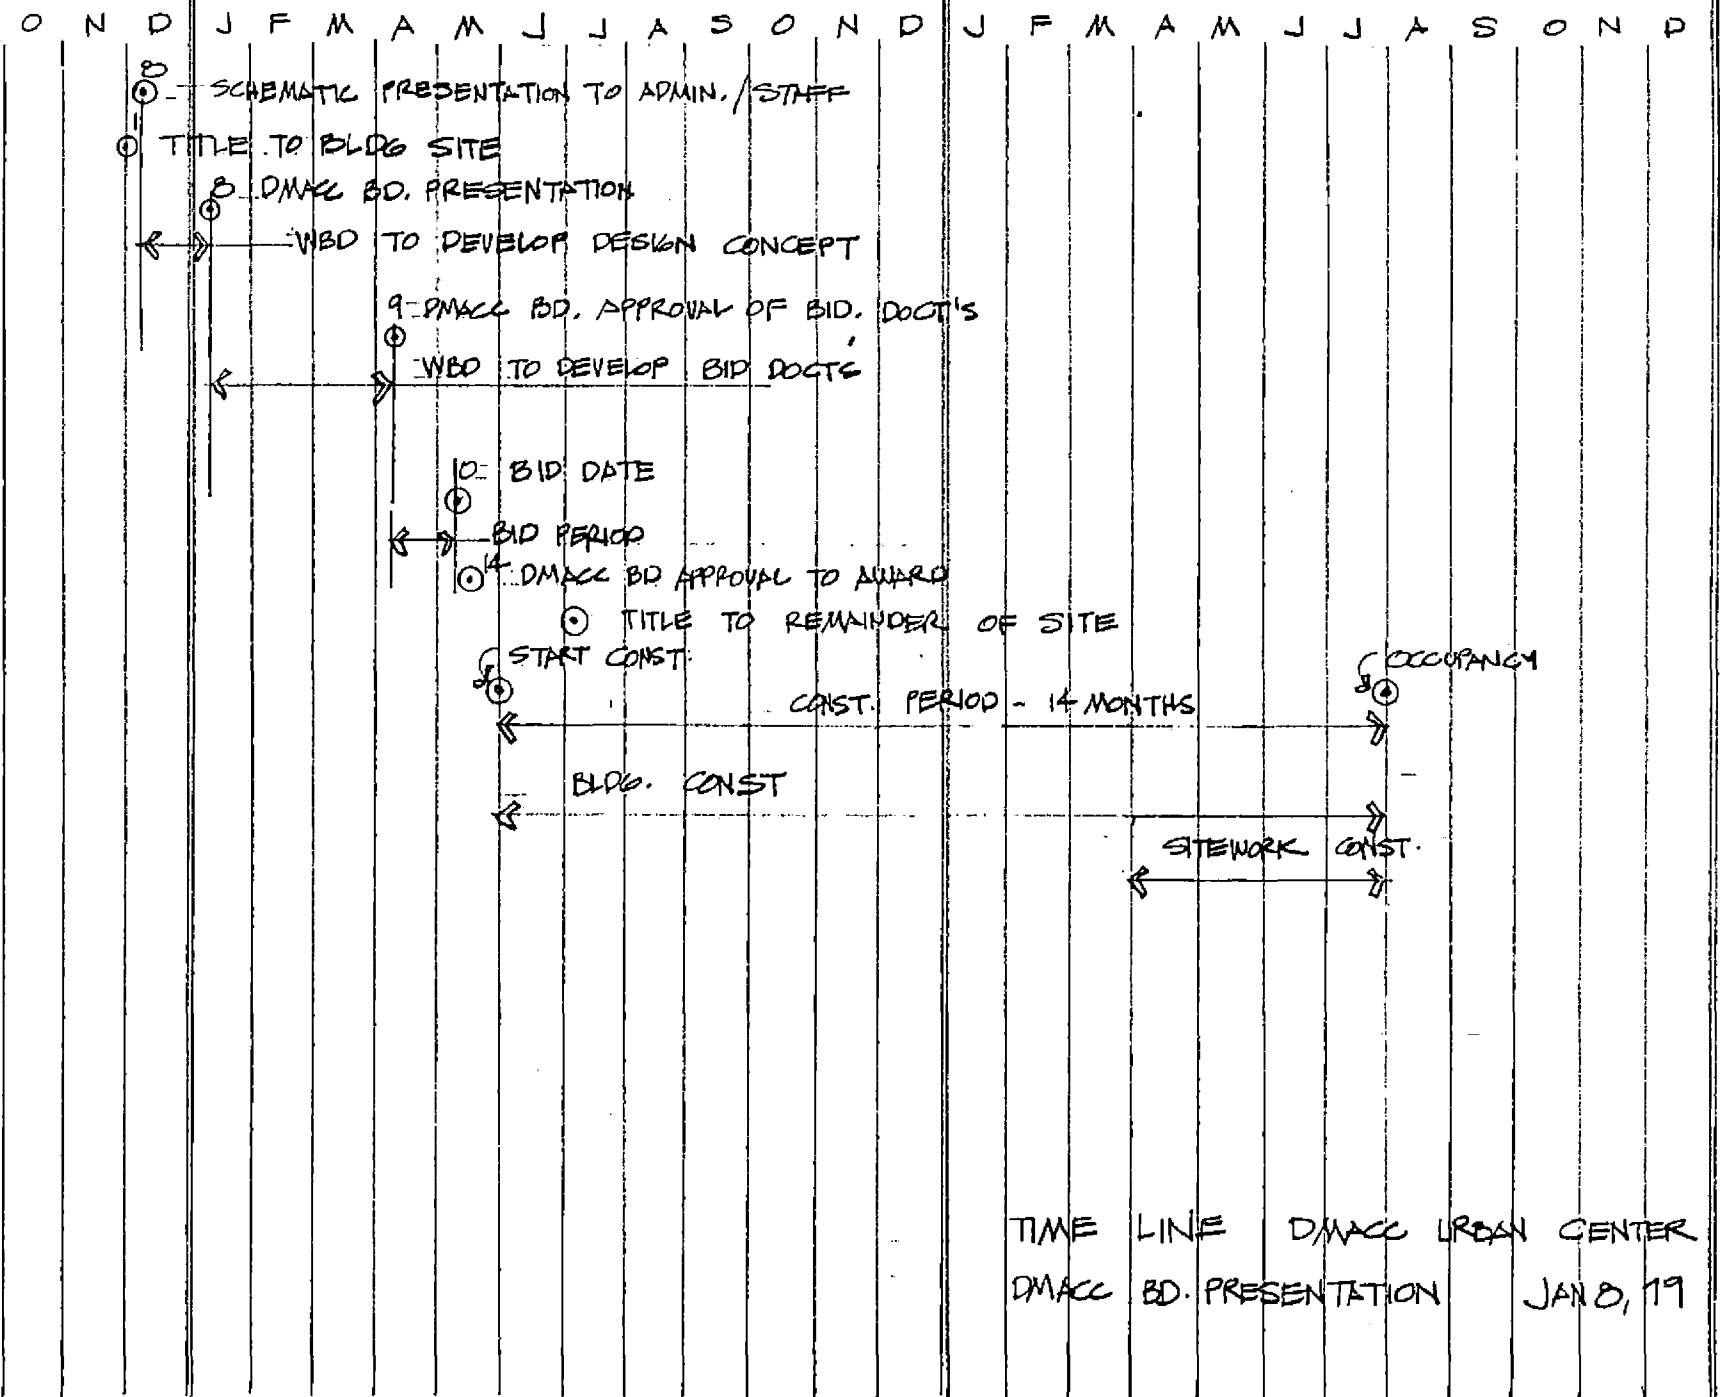 O N D J F M A M J J A S O N D J F M A M J J A S O N D
8
- SCHEMATIC PRESENTATION TO ADMIN. / STAFF
1
TITLE TO BLDG SITE
8 - DMACC BD. PRESENTATION
WBD TO DEVELOP DESIGN CONCEPT
9 - DMACC BD. APPROVAL OF BID. DOCT'S
- WBD TO DEVELOP BID DOCT'S
10 - BID DATE
BID PERIOD
14 - DMACC BD APPROVAL TO AWARD
TITLE TO REMAINDER OF SITE
START CONST.
OCCUPANCY
CONST. PERIOD - 14 MONTHS
BLDG. CONST
SITEWORK CONST.
TIME LINE DMACC URBAN CENTER
DMACC BD. PRESENTATION JAN 8, 19